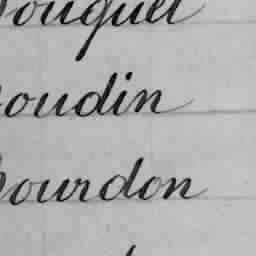 ouquet
oudin
ourdon